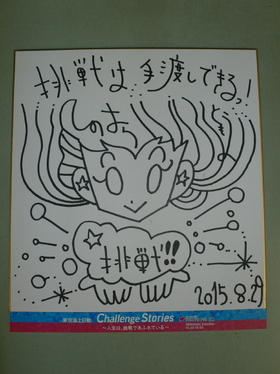 挑戦は手渡しできるっ!
しのはら
ともえ
挑戦!!
2015.8.29
東京海上日動 Challenge Stories
～人生は、挑戦であふれている～